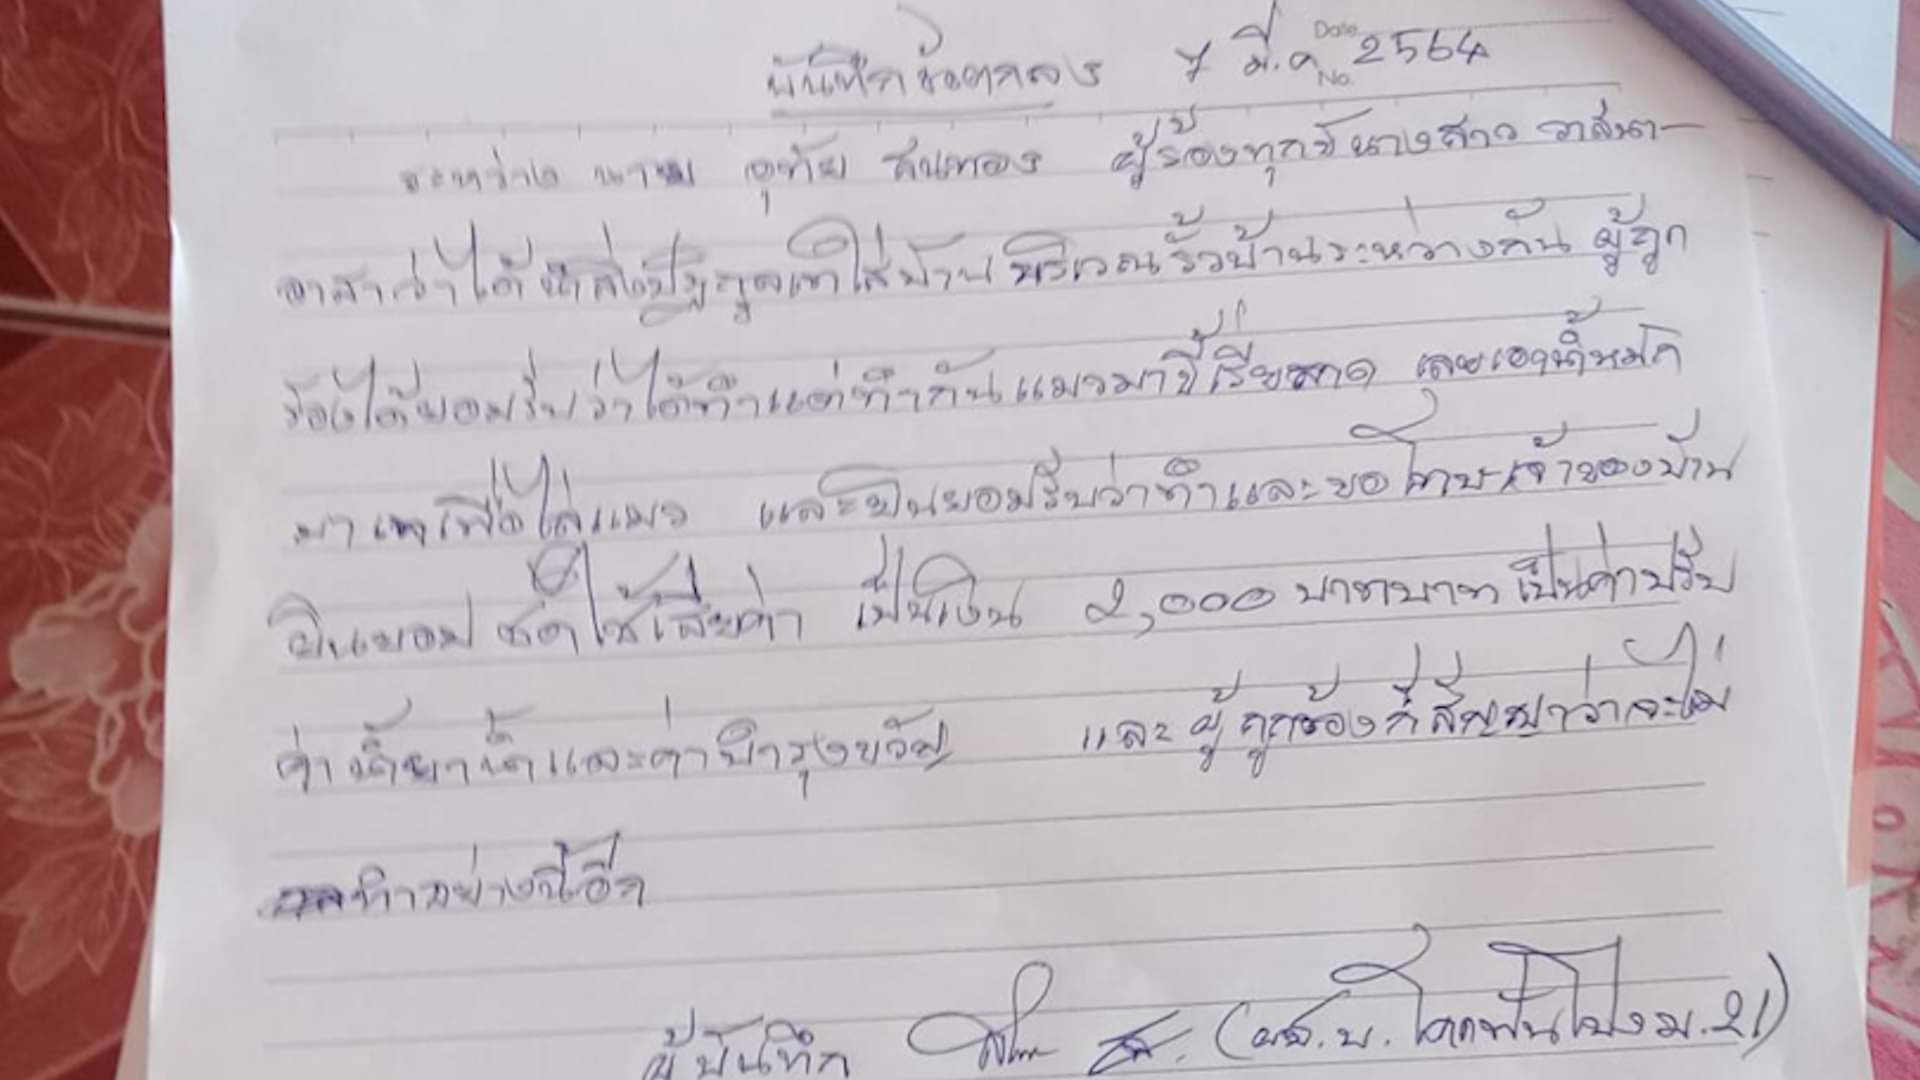 บันทึกข้อตกลง 7 มี.ค. 2564
Date
No.
ระหว่าง นาย อุทัย ผู้ร้องทุกข์ นางสาว วาสนา
อาสา ว่าได้นำสิ่งปฏิกูลเทใส่บ้านบริเวณรั้วบ้านระหว่างกัน ผู้ถูก
ร้องได้ยอมรับว่าได้ทำแต่ทำกันแมวมาขี้เรี่ยราด เลยเอาน้ำหมัก
มาเทเพื่อไล่แมว และยินยอมรับว่าทำและขอโทษเจ้าของบ้าน
ยินยอมชดใช้เสียค่า เป็นเงิน 2,000 บาทบาท เป็นค่าปรับ
ค่าน้ำยาน้ำและค่าบำรุงขวัญ และผู้ถูกร้องก็สัญญาว่าจะไม่
ทำอย่างนี้อีก
ผู้บันทึก (ผส.บ. ม.21)